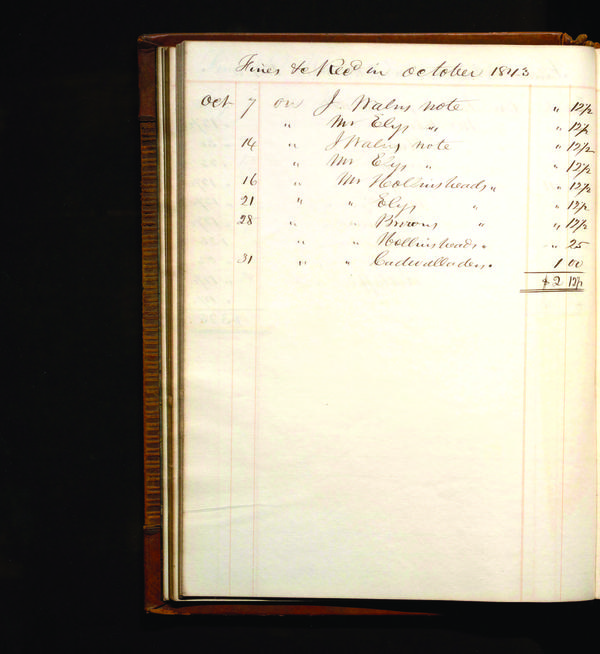 Fines &c Recd in October 1843
Oct 7 on J. Walns note " 12½
" Mr Elys " " 12½
14 " J Walns note " 12½
" Mr Elys " " 12½
16 " Mr Hollinsheads " " 12½
21 " " Elys " " 12½
28 " " Browns " " 12½
" " Hollinsheads " " 25
31 " " Cadwalladers " 1 00
$ 2 12½